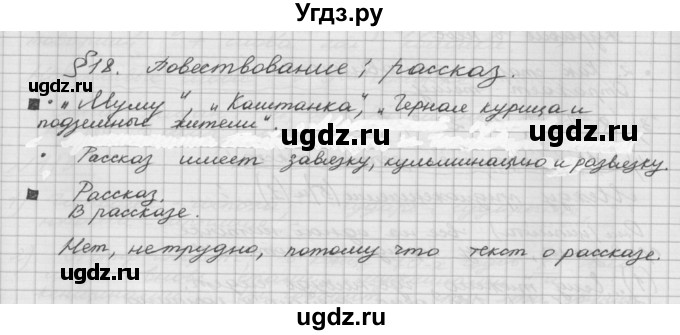 Угдз.ру
§18. Повествование, рассказ.
• „Муму“, „Каштанка“, „Черная курица и
подземные жители“.
• Рассказ имеет завязку, кульминацию и развязку.
Рассказ.
В рассказе.
Нет, нетрудно, потому что текст о рассказе.
ugdz.ru
ugdz.ru
ugdz.ru
ugdz.ru
ugdz.ru
ugdz.ru
ugdz.ru
ugdz.ru
ugdz.ru